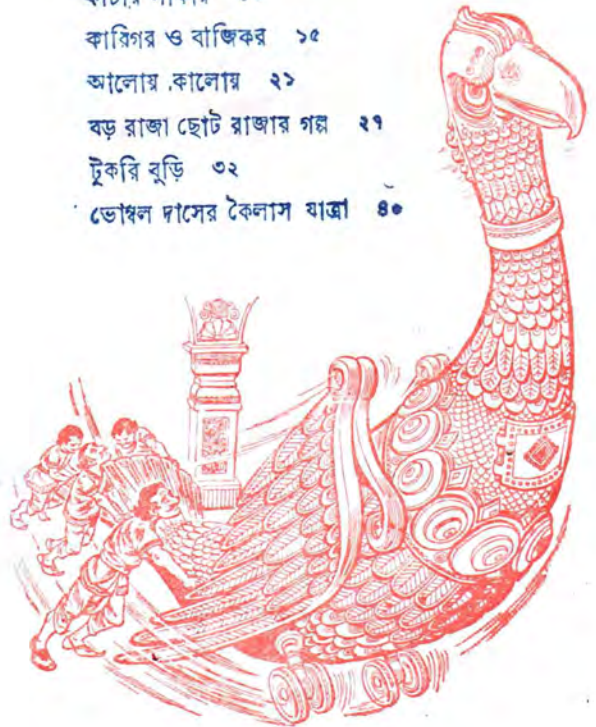 কারিগর ও বাজিকর ১৫
আলোয় কালোয় ২১
বড় রাজা ছোট রাজার গল্প ২৭
টুকরি বুড়ি ৩২
ভোম্বল দাসের কৈলাস যাত্রা ৪০